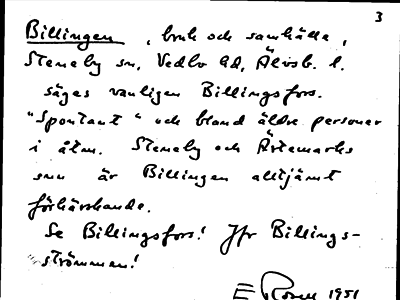 3
Billingen, bruk och samhälle,
Steneby sn, Vedbo hd, Älvsb. l.
säges vanligen Billingsfors.
"Spontant" och bland äldre personer
i åtm. Steneby och Ärtemarks
snr är Billingen alltjämt
förhärskande.
Se Billingsfors! Jfr Billings-
strömmen!
E Rosell 1951